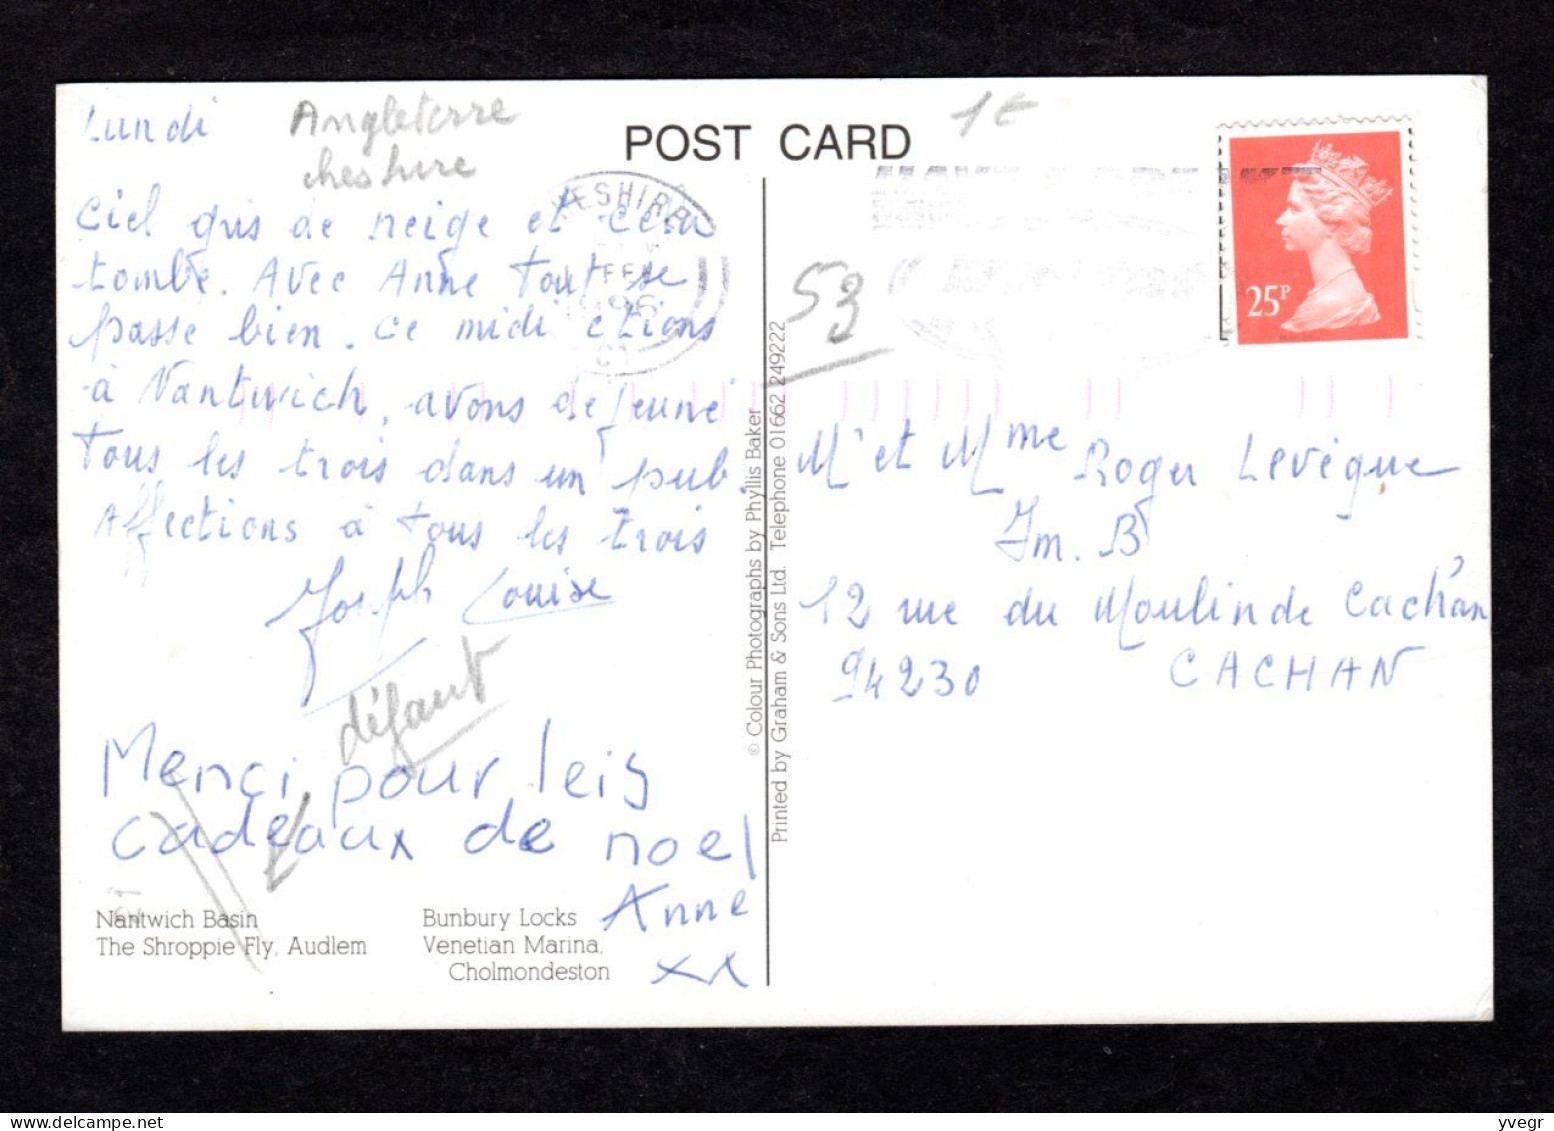 Lundi
Angleterre
cheshire
POST CARD
1€
ciel gris de neige et cela
tombe. Avec Anne tout se
passe bien. Ce midi étions
à Nantwich, avons dejeuné
tous les trois dans un pub.
Affections à tous les trois
Joseph Louise
défaut
Merci pour leis
cadeaux de noel
Anne
xx
Nantwich Basin
The Shroppie Fly, Audlem
Bunbury Locks
Venetian Marina,
Cholmondeston
© Colour Photographs by Phyllis Baker
Printed by Graham & Sons Ltd. Telephone 01662 249222
HESHIRE
FEB
1996
53
25P
Mr et Mme Roger Levêque
Im. B
12 rue du Moulin de Cachan
94230 CACHAN
yvegr
www.delcampe.net